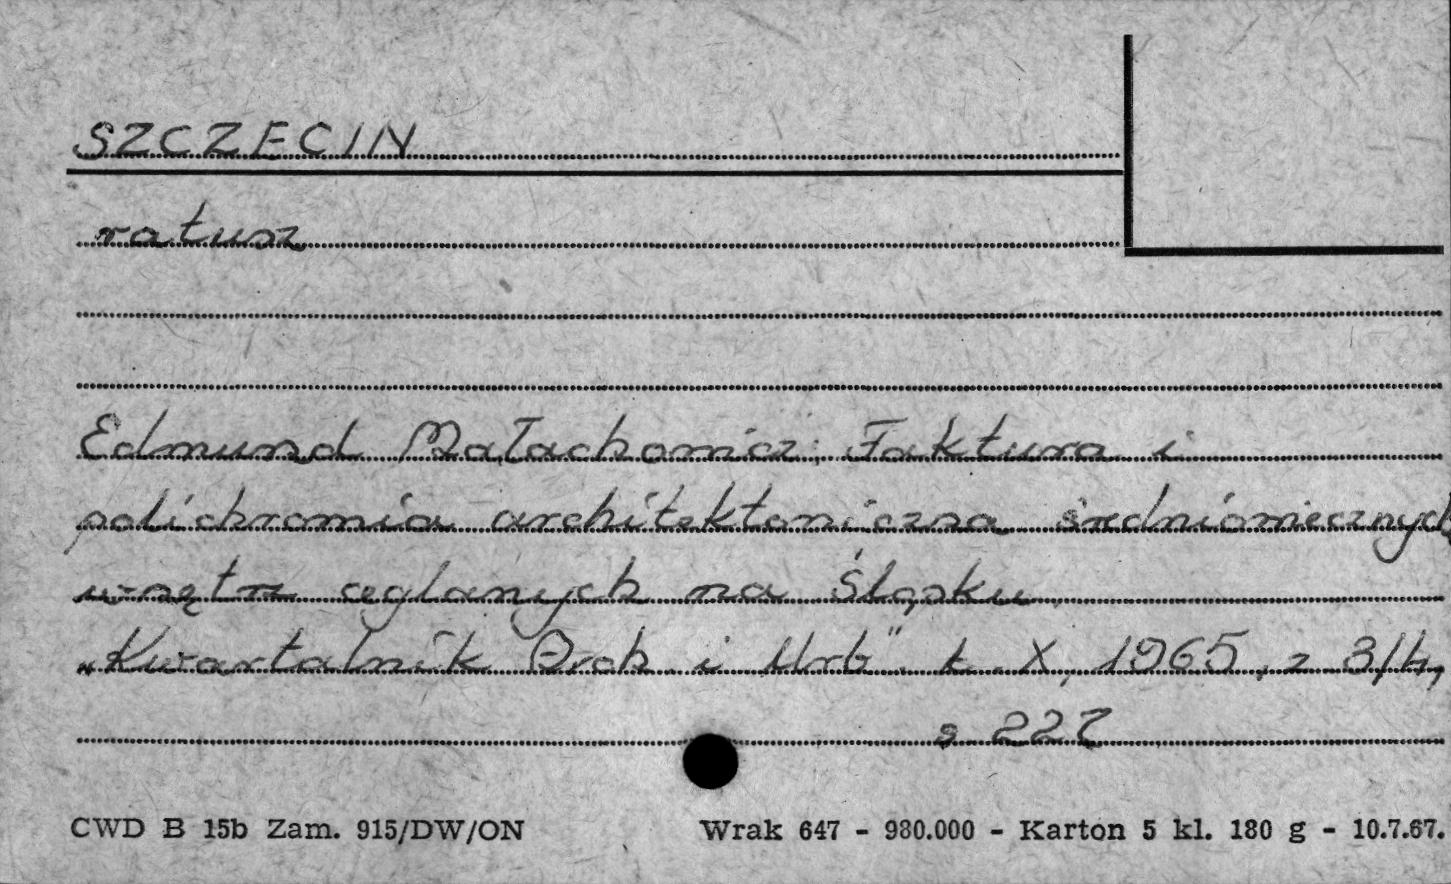 SZCZECIN
ratusz
Edmund Małachowicz; Faktura i
polichromia architektoniczna średniowiecznych
wnętrz ceglanych na Śląsku.
„Kwartalnik Arch i Urb". t. X, 1965, z 3/4,
s 227
CWD B 15b Zam. 915/DW/ON Wrak 647 - 980.000 - Karton 5 kl. 180 g - 10.7.67.